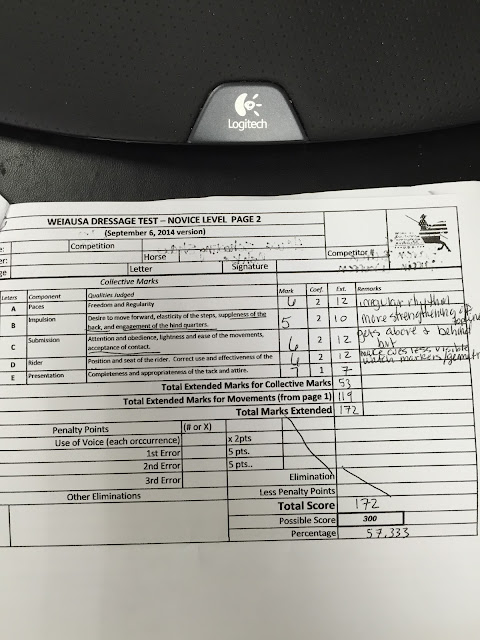 Logitech
WEIAUSA DRESSAGE TEST – NOVICE LEVEL PAGE 2
(September 6, 2014 version)
Competition
Horse
Competitor
Letter
Signature
Collective Marks
Letters Component Qualities Judged Mark Coef. Ext. Remarks
A Paces Freedom and Regularity 6 2 12 irregular rhythm
B Impulsion Desire to move forward, elasticity of the steps, suppleness of the back, and engagement of the hind quarters. 5 2 10 more strengthening of
C Submission Attention and obedience, lightness and ease of the movements, acceptance of contact. 6 2 12 gets above & behind
but
D Rider Position and seat of the rider. Correct use and effectiveness of the 6 2 12 make cues less visible
watch markers/geometr
E Presentation Completeness and appropriateness of the tack and attire. 7 1 7
Total Extended Marks for Collective Marks 53
Total Extended Marks for Movements (from page 1) 119
Total Marks Extended 172
Penalty Points (# or X)
Use of Voice (each orccurrence) x 2pts
1st Error 5 pts.
2nd Error 5 pts..
3rd Error Elimination
Other Eliminations Less Penalty Points
Total Score 172
Possible Score 300
Percentage 57.333